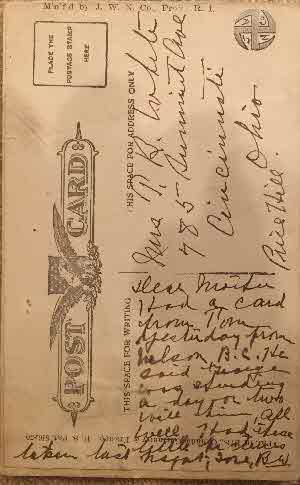 M'n'f'd by J. W. N. Co., Prov. R. I.
PLACE THE
POSTAGE STAMP
HERE
POST CARD
THIS SPACE FOR WRITING
THIS SPACE FOR ADDRESS ONLY
Mrs T. H. White
785 Summit Ave
Cincinnati
Ohio.
Price Hill.
Dear Mother
I had a card
from Tom
yesterday from
Nelson B.C. He
said George
was spending
a day or two
with them, All
well. I had these
taken last